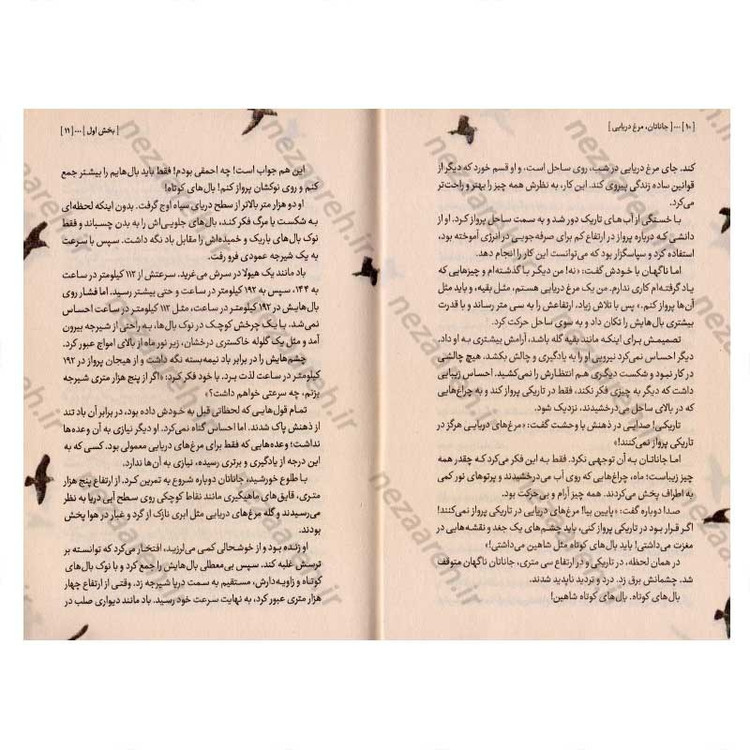 [۱۰] ... [ جاناتان، مرغ دریایی ]
کند. جای مرغ دریایی در شب، روی ساحل است، و او قسم خورد که دیگر از
قوانین ساده زندگی پیروی کند. این کار، به نظرش همه چیز را بهتر و راحت‌تر
می‌کرد.
با خستگی از آب‌های تاریک دور شد و به سمت ساحل پرواز کرد. او از
دانشی که درباره پرواز در ارتفاع کم برای صرفه‌جویی در انرژی آموخته بود،
استفاده کرد و سپاسگزار بود که می‌توانست این کار را انجام دهد.
اما ناگهان با خودش گفت: «نه! من دیگر با گذشته‌ام و چیزهایی که
یاد گرفته‌ام کاری ندارم. من یک مرغ دریایی هستم، مثل بقیه، و باید مثل
آن‌ها پرواز کنم.» پس با تلاش زیاد، ارتفاعش را به سی متر رساند و با قدرت
بیشتری بال‌هایش را تکان داد و به سوی ساحل حرکت کرد.
تصمیمش برای اینکه مانند بقیه گله باشد، آرامش بیشتری به او داد.
دیگر احساس نمی‌کرد نیرویی او را به یادگیری و چالش بکشد. هیچ چالشی
در کار نبود و شکست دیگری هم انتظارش را نمی‌کشید. احساس زیبایی
داشت که دیگر به چیزی فکر نکند، فقط در تاریکی پرواز کند و به چراغ‌هایی
که در بالای ساحل می‌درخشیدند، نزدیک شود.
تاریکی! صدایی در ذهنش با وحشت گفت: «مرغ‌های دریایی هرگز در
تاریکی پرواز نمی‌کنند!»
اما جاناتان به آن توجهی نکرد. فقط به این فکر می‌کرد که چقدر همه
چیز زیباست؛ ماه، چراغ‌هایی که روی آب می‌درخشیدند و پرتوهای نور کمی
به اطراف پخش می‌کردند. همه چیز آرام و بی‌حرکت بود.
صدا دوباره گفت: «پایین بیا! مرغ‌های دریایی در تاریکی پرواز نمی‌کنند!
اگر قرار بود در تاریکی پرواز کنی، باید چشم‌های یک جغد و نقشه‌هایی در
مغزت می‌داشتی! باید بال‌های کوتاه مثل شاهین می‌داشتی!»
در همان لحظه، در تاریکی و در ارتفاع سی متری، جاناتان ناگهان متوقف
شد. چشمانش برق زد. درد و تردید ناپدید شدند.
بال‌های کوتاه. بال‌های کوتاه شاهین!
[ بخش اول ] ... [ ۱۱ ]
این هم جواب است! چه احمقی بودم! فقط باید بال‌هایم را بیشتر جمع
کنم و روی نوکشان پرواز کنم! بال‌های کوتاه!
او دو هزار متر بالاتر از سطح دریای سیاه اوج گرفت. بدون اینکه لحظه‌ای
به شکست یا مرگ فکر کند، بال‌های جلویی‌اش را به بدن چسباند و فقط
نوک بال‌های باریک و خمیده‌اش را مقابل باد نگه داشت. سپس با سرعت
به یک شیرجه عمودی فرو رفت.
باد مانند یک هیولا در سرش می‌غرید. سرعتش از ۱۱۲ کیلومتر در ساعت
به ۱۴۴، سپس به ۱۹۲ کیلومتر در ساعت و حتی بیشتر رسید. اما فشار روی
بال‌هایش در ۱۹۲ کیلومتر در ساعت، مثل ۱۱۲ کیلومتر در ساعت احساس
نمی‌شد. با یک چرخش کوچک در نوک بال‌ها، به راحتی از شیرجه بیرون
آمد و مثل یک گلوله خاکستری درخشان، زیر نور ماه از بالای امواج عبور کرد.
چشم‌هایش را در برابر باد نیمه‌بسته نگه داشت و از هیجان پرواز در ۱۹۲
کیلومتر در ساعت لذت برد. با خود فکر کرد: «اگر از پنج هزار متری شیرجه
بزنم، چه سرعتی خواهم داشت؟»
تمام قول‌هایی که لحظاتی قبل به خودش داده بود، در برابر آن باد تند
از ذهنش پاک شدند. اما احساس گناه نمی‌کرد. او دیگر نیازی به آن وعده‌ها
نداشت؛ وعده‌هایی که فقط برای مرغ‌های دریایی معمولی بود. کسی که به
این درجه از یادگیری و برتری رسیده، نیازی به آن‌ها ندارد.
با طلوع خورشید، جاناتان دوباره شروع به تمرین کرد. از ارتفاع پنج هزار
متری، قایق‌های ماهیگیری مانند نقاط کوچکی روی سطح آبی دریا به نظر
می‌رسیدند و گله مرغ‌های دریایی مثل ابری نازک از گرد و غبار در هوا پخش
بودند.
او زنده بود و از خوشحالی کمی می‌لرزید، افتخار می‌کرد که توانسته بر
ترسش غلبه کند. سپس بی‌معطلی بال‌هایش را جمع کرد و با نوک بال‌های
کوتاه و زاویه‌دارش، مستقیم به سمت دریا شیرجه زد. وقتی از ارتفاع چهار
هزار متری عبور کرد، به نهایت سرعت خود رسید. باد مانند دیواری صلب در
nezaareh.ir